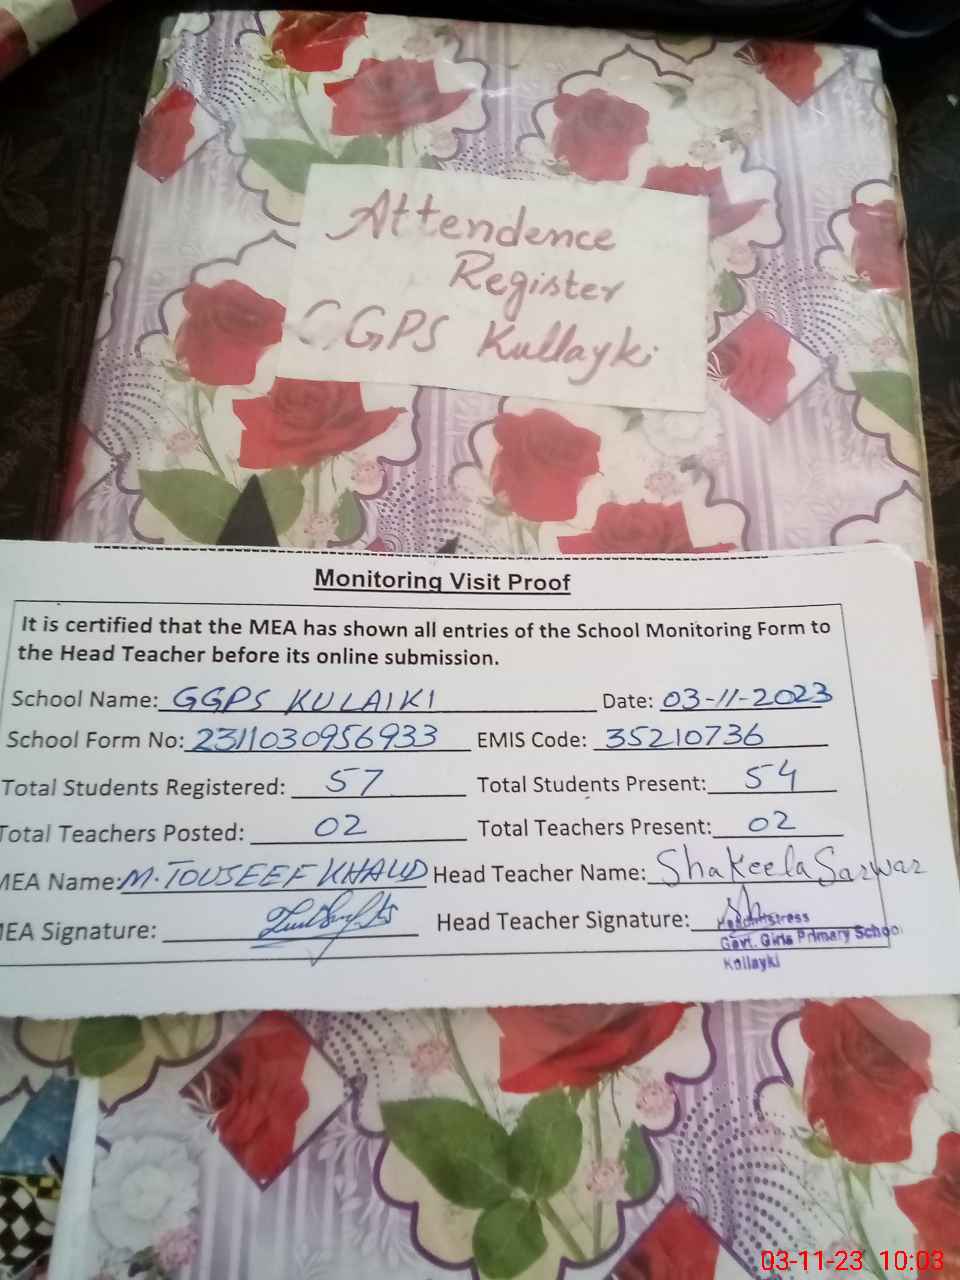 Attendence
Register
GGPS Kullayki
Monitoring Visit Proof
It is certified that the MEA has shown all entries of the School Monitoring Form to
the Head Teacher before its online submission.
School Name: GGPS KULAIKI Date: 03-11-2023
School Form No: 2311030956933 EMIS Code: 35210736
Total Students Registered: 57 Total Students Present: 54
Total Teachers Posted: 02 Total Teachers Present: 02
MEA Name: M. TOUSEEF KHALID Head Teacher Name: Shakeela Sarwar
MEA Signature: Head Teacher Signature:
Headmistress
Govt. Girls Primary School
Kollayki
03-11-23 10:03